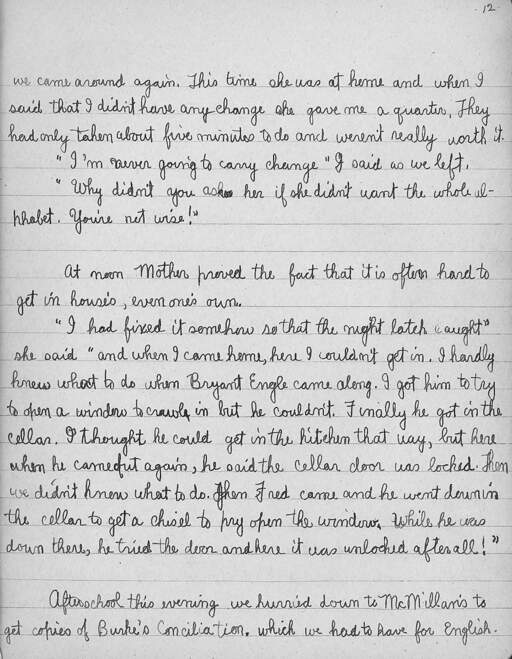 12
we came around again. This time she was at home and when I
said that I didn't have any change she gave me a quarter. They
had only taken about five minutes to do and weren't really worth it.
"I'm never going to carry change" I said as we left.
"Why didn't you ask her if she didn't want the whole al-
phabet. You're not wise!"
At noon Mother proved the fact that it is often hard to
get in houses, even one's own.
"I had fixed it somehow so that the night latch caught"
she said "and when I came home, here I couldn't get in. I hardly
knew what to do when Bryant Engle came along. I got him to try
to open a window to crawl in but he couldn't. Finally he got in the
cellar. I thought he could get in the kitchen that way, but here
when he came out again, he said the cellar door was locked. Then
we didn't know what to do. Then Fred came and he went down in
the cellar to get a chisel to pry open the window. While he was
down there, he tried the door and here it was unlocked after all!"
After school this evening we hurried down to McMillan's to
get copies of Burke's Conciliation. which we had to have for English.